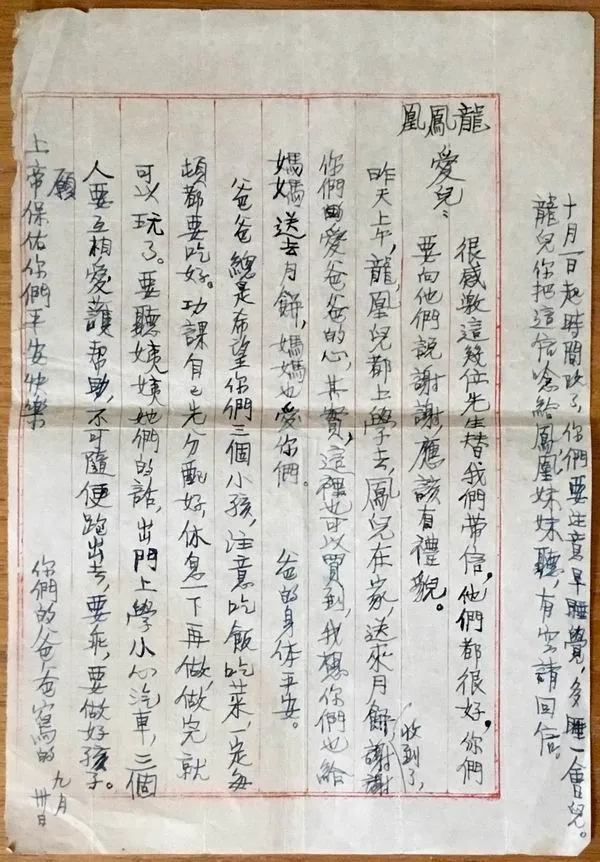 十月一日起時間改了，你們要注意早睡覺，多睡一會兒。
龍兒你把這信念給鳳凰妹妹聽，有空請回信。
龍鳳凰
愛兒：
很感激這幾位先生替我們帶信，他們都很好，你們
要向他們說謝謝應該有禮貌。
昨天上午，龍，凰兒都上學去，鳳兒在家，送來月餅，收到了，謝謝
你們的愛爸爸的心，其實，這裡也可以買到，我想你們也給
媽媽送去月餅，媽媽也愛你們。　爸的身体平安。
爸爸總是希望你們三個小孩，注意吃飯吃菜，一定每
頓都要吃好。功課自己先分配好休息一下再做，做完就
可以玩了。要聽姨姨她們的話，出門上學小心汽車，三個
人要互相愛護幫助，不可隨便跑出去，要乖，要做好孩子。
願
上帝保佑你們平安快樂
你們的爸爸寫的
九月
卅日